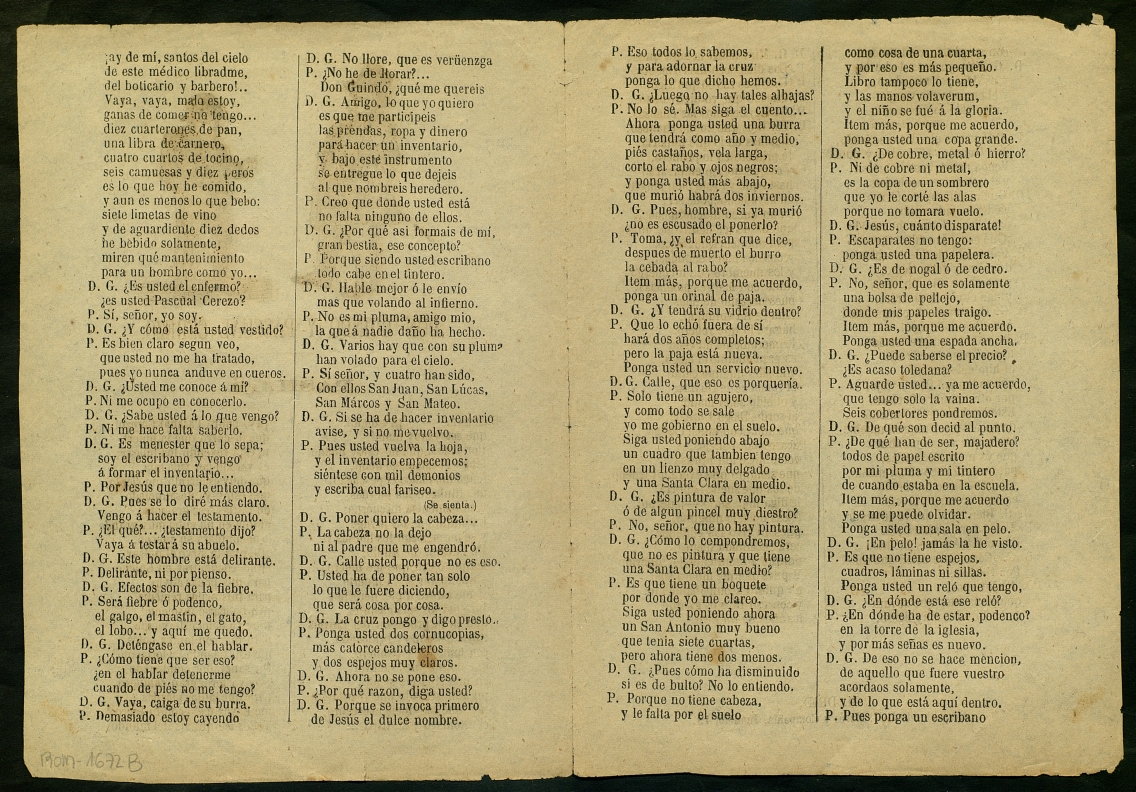 ¡ay de mí, santos del cielo
de este médico libradme,
del boticario y barbero!..
Vaya, vaya, malo estoy,
ganas de comer no tengo...
diez cuarterones de pan,
una libra de carnero,
cuatro cuartos de tocino,
seis camuesas y diez peros
es lo que hoy he comido,
y aun es menos lo que bebo:
siete limetas de vino
y de aguardiente diez dedos
he bebido solamente,
miren qué mantenimiento
para un hombre como yo...
D. G. ¿Es usted el enfermo?
¿es usted Pascual Cerezo?
P. Sí, señor, yo soy.
D. G. ¿Y cómo está usted vestido?
P. Es bien claro segun veo,
que usted no me ha tratado,
pues yo nunca anduve en cueros.
D. G. ¿Usted me conoce á mí?
P. Ni me ocupo en conocerlo.
D. G. ¿Sabe usted á lo que vengo?
P. Ni me hace falta saberlo.
D. G. Es menester que lo sepa;
soy el escribano y vengo
á formar el inventario...
P. Por Jesús que no le entiendo.
D. G. Pues se lo diré más claro.
Vengo á hacer el testamento.
P. ¿El qué?... ¿testamento dijo?
Vaya á testar á su abuelo.
D. G. Este hombre está delirante.
P. Delirante, ni por pienso.
D. G. Efectos son de la fiebre.
P. Será fiebre ó podenco,
el galgo, el mastín, el gato,
el lobo... y aquí me quedo.
D. G. Deténgase en el hablar.
P. ¿Cómo tiene que ser eso?
¿en el hablar detenerme
cuando de piés no me tengo?
D. G. Vaya, caiga de su burra.
P. Demasiado estoy cayendo
D. G. No llore, que es verüenzga
P. ¿No he de llorar?...
Don Guindo, ¿qué me quereis
D. G. Amigo, lo que yo quiero
es que me participeis
las prendas, ropa y dinero
para hacer un inventario,
y bajo este instrumento
se entregue lo que dejeis
al que nombreis heredero.
P. Creo que donde usted está
no falta ninguno de ellos.
D. G. ¿Por qué asi formais de mí,
gran bestia, ese concepto?
P. Porque siendo usted escribano
todo cabe en el tintero.
D. G. Hable mejor ó le envío
mas que volando al infierno.
P. No es mi pluma, amigo mio,
la que á nadie daño ha hecho.
D. G. Varios hay que con su pluma
han volado para el cielo.
P. Sí señor, y cuatro han sido,
Con ellos San Juan, San Lúcas,
San Márcos y San Mateo.
D. G. Si se ha de hacer inventario
avise, y si no me vuelvo.
P. Pues usted vuelva la hoja,
y el inventario empecemos;
siéntese con mil demonios
y escriba cual fariseo.
(Se sienta.)
D. G. Poner quiero la cabeza...
P. La cabeza no la dejo
ni al padre que me engendró.
D. G. Calle usted porque no es eso.
P. Usted ha de poner tan solo
lo que le fuere diciendo,
que será cosa por cosa.
D. G. La cruz pongo y digo presto..
P. Ponga usted dos cornucopias,
más catorce candeleros
y dos espejos muy claros.
D. G. Ahora no se pone eso.
P. ¿Por qué razon, diga usted?
D. G. Porque se invoca primero
de Jesús el dulce nombre.
P. Eso todos lo sabemos,
y para adornar la cruz
ponga lo que dicho hemos.
D. G. ¿Luego no hay tales albajas?
P. No lo sé. Mas siga el cuento...
Ahora ponga usted una burra
que tendrá como año y medio,
piés castaños, vela larga,
corto el rabo y ojos negros;
y ponga usted más abajo,
que murió habrá dos inviernos.
D. G. Pues, hombre, si ya murió
¿no es escusado el ponerlo?
P. Toma, ¿y el refran que dice,
despues de muerto el burro
la cebada al rabo?
Item más, porque me acuerdo,
ponga un orinal de paja.
D. G. ¿Y tendrá su vidrio dentro?
P. Que lo echó fuera de sí
hará dos años completos;
pero la paja está nueva.
Ponga usted un servicio nuevo.
D. G. Calle, que eso es porquería.
P. Solo tiene un agujero,
y como todo se sale
yo me gobierno en el suelo.
Siga usted poniendo abajo
un cuadro que tambien tengo
en un lienzo muy delgado
y una Santa Clara en medio.
D. G. ¿Es pintura de valor
ó de algun pincel muy diestro?
P. No, señor, que no hay pintura.
D. G. ¿Cómo lo compondremos,
que no es pintura y que tiene
una Santa Clara en medio?
P. Es que tiene un boquete
por donde yo me clareo.
Siga usted poniendo ahora
un San Antonio muy bueno
que tenia siete cuartas,
pero ahora tiene dos menos.
D. G. ¿Pues cómo ha disminuido
si es de bulto? No lo entiendo.
P. Porque no tiene cabeza,
y le falta por el suelo
como cosa de una cuarta,
y por eso es más pequeño.
Libro tampoco lo tiene,
y las manos volaverum,
y el niño se fué á la gloria.
Item más, porque me acuerdo,
ponga usted una copa grande.
D. G. ¿De cobre, metal ó hierro?
P. Ni de cobre ni metal,
es la copa de un sombrero
que yo le corté las alas
porque no tomara vuelo.
D. G. Jesús, cuánto disparate!
P. Escaparates no tengo:
ponga usted una papelera.
D. G. ¿Es de nogal ó de cedro.
P. No, señor, que es solamente
una bolsa de pellejo,
donde mis papeles traigo.
Item más, porque me acuerdo.
Ponga usted una espada ancha.
D. G. ¿Puede saberse el precio?
¿Es acaso toledana?
P. Aguarde usted... ya me acuerdo,
que tengo solo la vaina.
Seis cobertores pondremos.
D. G. De qué son decid al punto.
P. ¿De qué han de ser, majadero?
todos de papel escrito
por mi pluma y mi tintero
de cuando estaba en la escuela.
Item más, porque me acuerdo
y se me puede olvidar.
Ponga usted una sala en pelo.
D. G. ¡En pelo! jamás la he visto.
P. Es que no tiene espejos,
cuadros, láminas ni sillas.
Ponga usted un reló que tengo,
D. G. ¿En dónde está ese reló?
P. ¿En dónde ha de estar, podenco?
en la torre de la iglesia,
y por más señas es nuevo.
D. G. De eso no se hace mencion,
de aquello que fuere vuestro
acordaos solamente,
y de lo que está aquí dentro.
P. Pues ponga un escribano
Rom-1672B